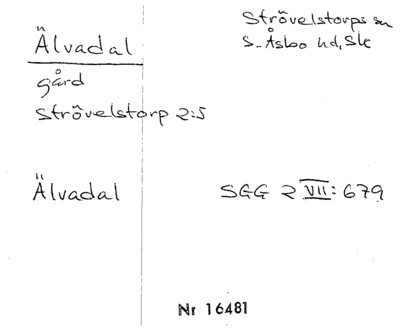 Älvadal
Strövelstorps sn
S. Åsbo hd, Sk
gård
Strövelstorp 2:5
Älvadal
SGG 2 VII: 679
Nr 16481